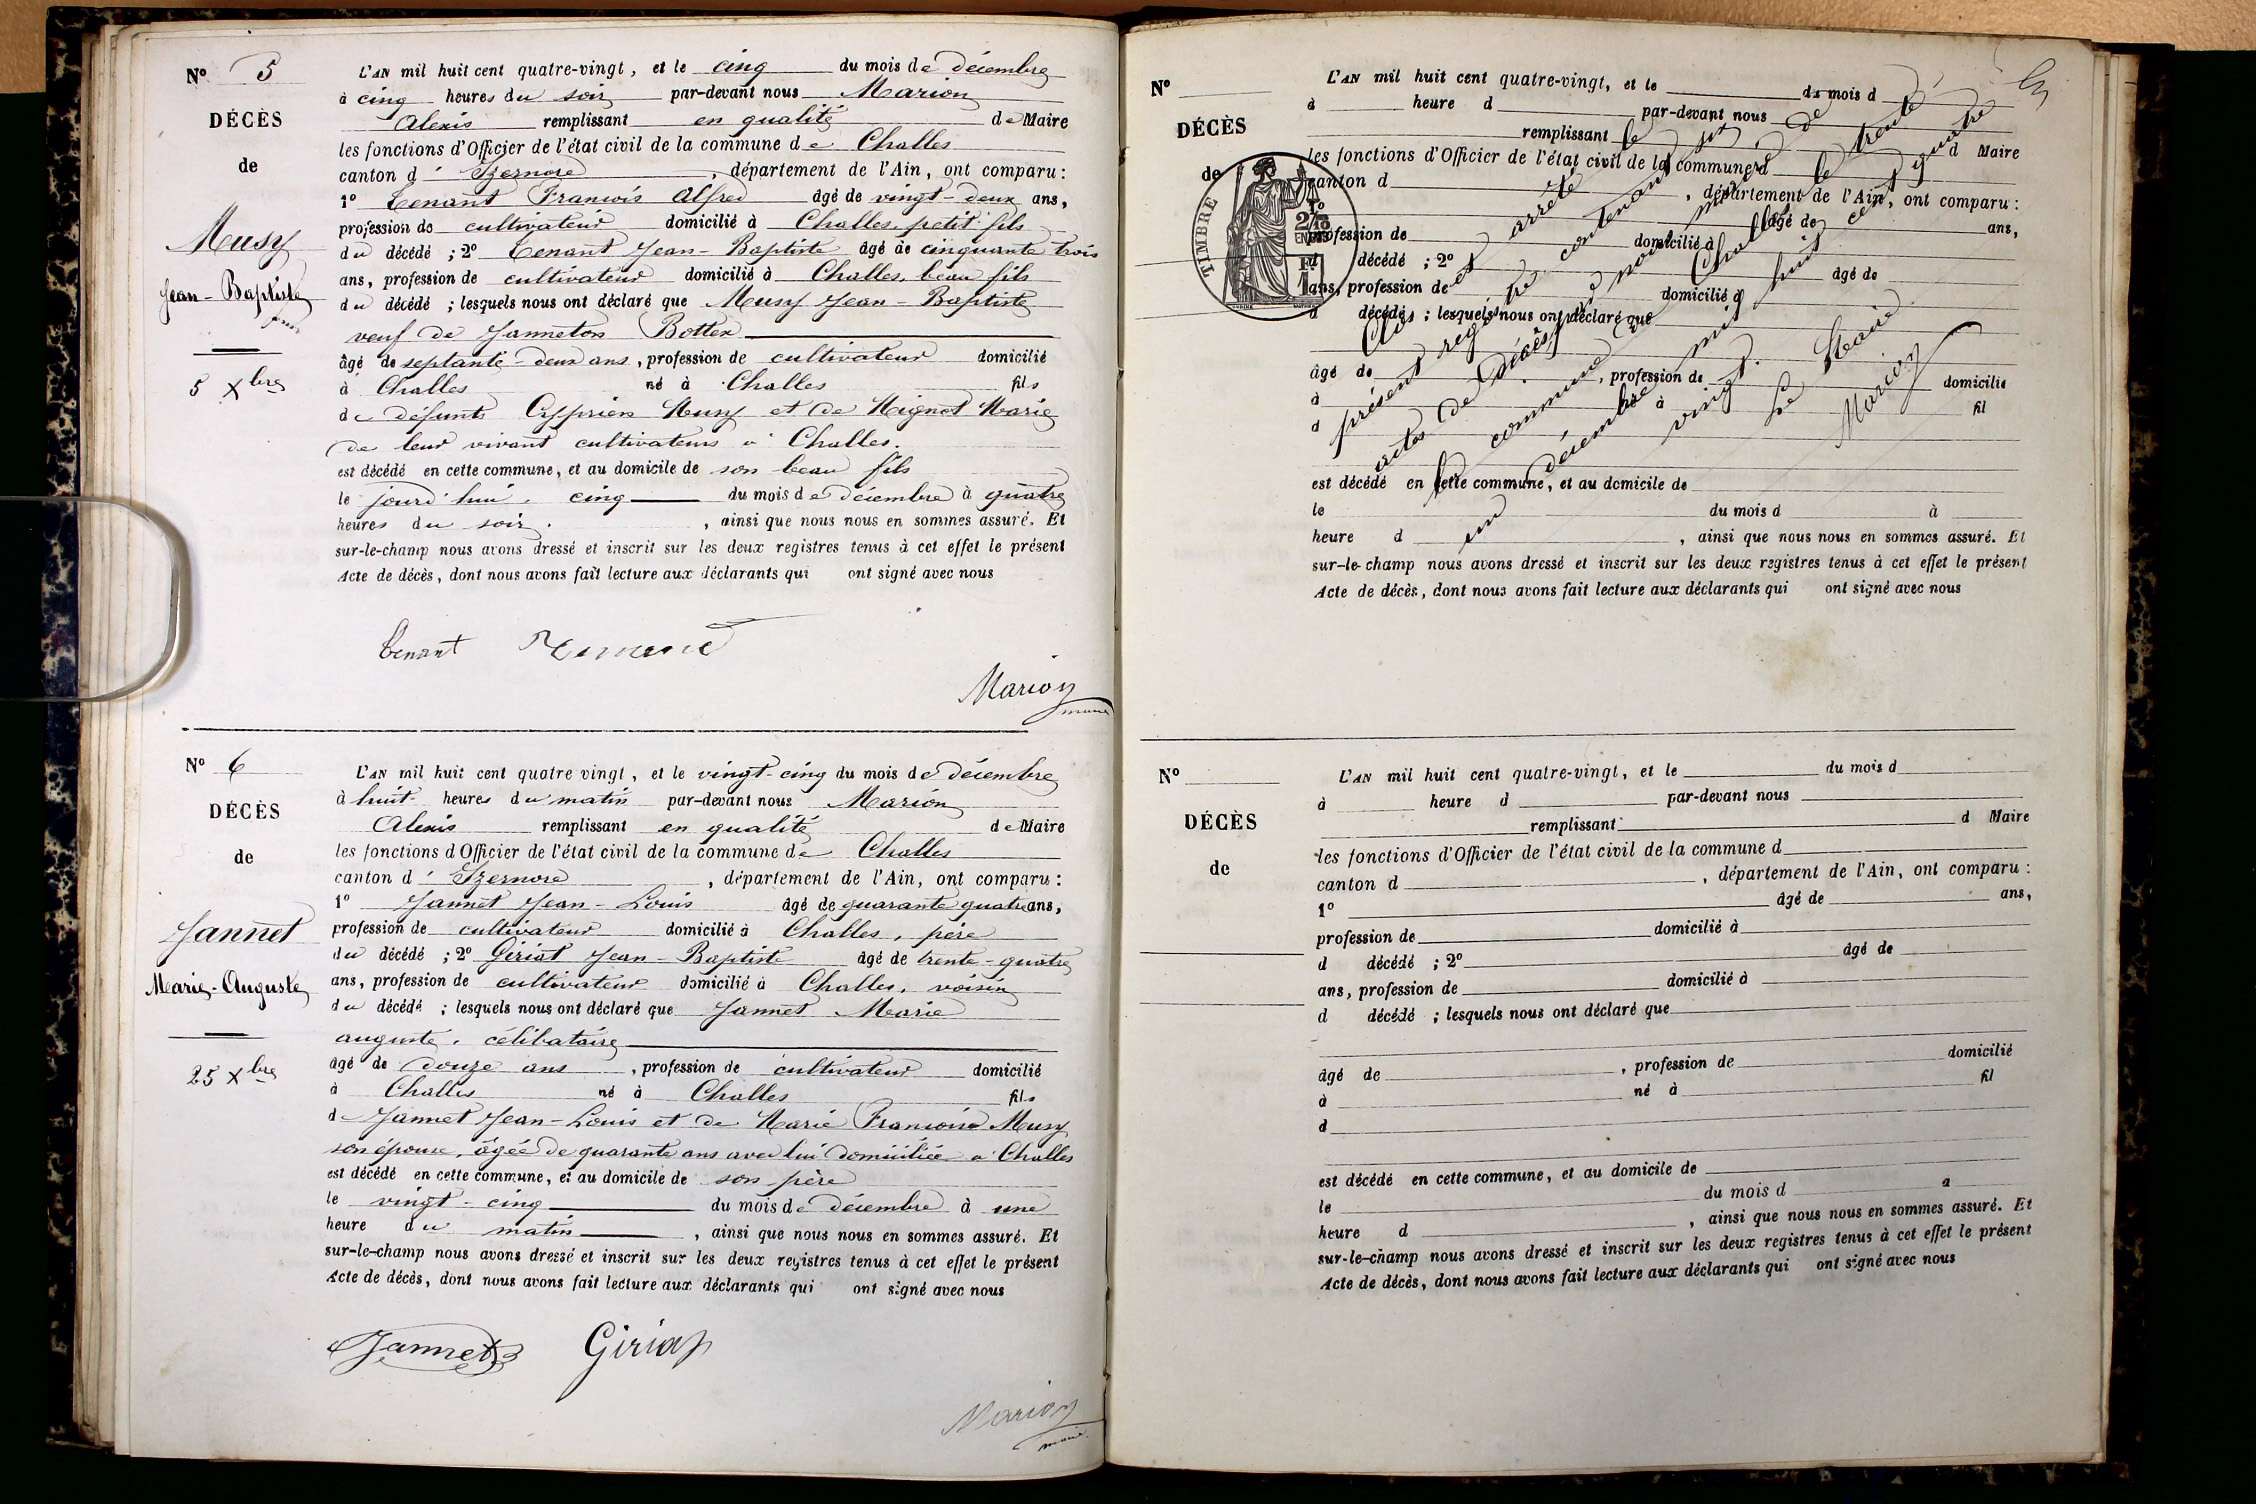 N° 5
DÉCÈS
de
Musy
Jean-Baptiste
5 Xbre
L'AN mil huit cent quatre-vingt, et le cinq du mois de décembre
à cinq heures du soir par-devant nous Marion
Alexis remplissant en qualité de Maire
les fonctions d'Officier de l'état civil de la commune de Challes
canton d' Izernore, département de l'Ain, ont comparu:
1° Tenant François Alfred âgé de vingt-deux ans,
profession de cultivateur domicilié à Challes, petit fils
du décédé ; 2° Tenant Jean-Baptiste âgé de cinquante trois
ans, profession de cultivateur domicilié à Challes, beau fils
du décédé ; lesquels nous ont déclaré que Musy Jean-Baptiste
veuf de Janneton Bottex
âgé de septante-deux ans, profession de cultivateur domicilié
à Challes né à Challes fils
de défunts Cyprien Musy et de Mignot Marie
de leur vivant cultivateurs à Challes.
est décédé en cette commune, et au domicile de son beau fils
le jourd'hui cinq du mois de décembre à quatre
heures du soir, ainsi que nous nous en sommes assuré. Et
sur-le-champ nous avons dressé et inscrit sur les deux registres tenus à cet effet le présent
Acte de décès, dont nous avons fait lecture aux déclarants qui ont signé avec nous
tenant
Marion
maire
N° 6
DÉCÈS
de
Jannet
Marie-Auguste
25 Xbre
L'AN mil huit cent quatre vingt, et le vingt-cinq du mois de décembre
à huit heures du matin par-devant nous Marion
Alexis remplissant en qualité de Maire
les fonctions d'Officier de l'état civil de la commune de Challes
canton d' Izernore, département de l'Ain, ont comparu:
1° Jannet Jean-Louis âgé de quarante quatre ans,
profession de cultivateur domicilié à Challes, père
du décédé ; 2° Giriat Jean-Baptiste âgé de trente-quatre
ans, profession de cultivateur domicilié à Challes, voisin
du décédé ; lesquels nous ont déclaré que Jannet Marie
auguste, célibataire
âgé de douze ans, profession de cultivateur domicilié
à Challes né à Challes fils
de Jannet Jean-Louis et de Marie Françoise Musy
son épouse, âgée de quarante ans avec lui domiciliée à Challes
est décédé en cette commune, et au domicile de son père
le vingt-cinq du mois de décembre à une
heure du matin, ainsi que nous nous en sommes assuré. Et
sur-le-champ nous avons dressé et inscrit sur les deux registres tenus à cet effet le présent
Acte de décès, dont nous avons fait lecture aux déclarants qui ont signé avec nous
Jannet Giriat
Marion
maire
N°
DÉCÈS
de
TIMBRE
L'AN mil huit cent quatre-vingt, et le du mois d
à heure d par-devant nous
remplissant d Maire
les fonctions d'Officier de l'état civil de la commune d
canton d , département de l'Ain, ont comparu:
1° âgé de ans,
profession de domicilié à
d décédé ; 2° âgé de
ans, profession de domicilié à
d décédé ; lesquels nous ont déclaré que
âgé de , profession de domicilié
à né à fil
d
est décédé en cette commune, et au domicile de
le du mois d à
heure d , ainsi que nous nous en sommes assuré. Et
sur-le-champ nous avons dressé et inscrit sur les deux registres tenus à cet effet le présent
Acte de décès, dont nous avons fait lecture aux déclarants qui ont signé avec nous
Clos et arrêté le
présent registre contenant six
actes de décès, par nous maire de
la commune de Challes le trente
un décembre mil huit cent quatre
vingt.
Le Maire
Marion
N°
DÉCÈS
de
L'AN mil huit cent quatre-vingt, et le du mois d
à heure d par-devant nous
remplissant d Maire
les fonctions d'Officier de l'état civil de la commune d
canton d , département de l'Ain, ont comparu:
1° âgé de ans,
profession de domicilié à
d décédé ; 2° âgé de
ans, profession de domicilié à
d décédé ; lesquels nous ont déclaré que
âgé de , profession de domicilié
à né à fil
d
est décédé en cette commune, et au domicile de
le du mois d à
heure d , ainsi que nous nous en sommes assuré. Et
sur-le-champ nous avons dressé et inscrit sur les deux registres tenus à cet effet le présent
Acte de décès, dont nous avons fait lecture aux déclarants qui ont signé avec nous